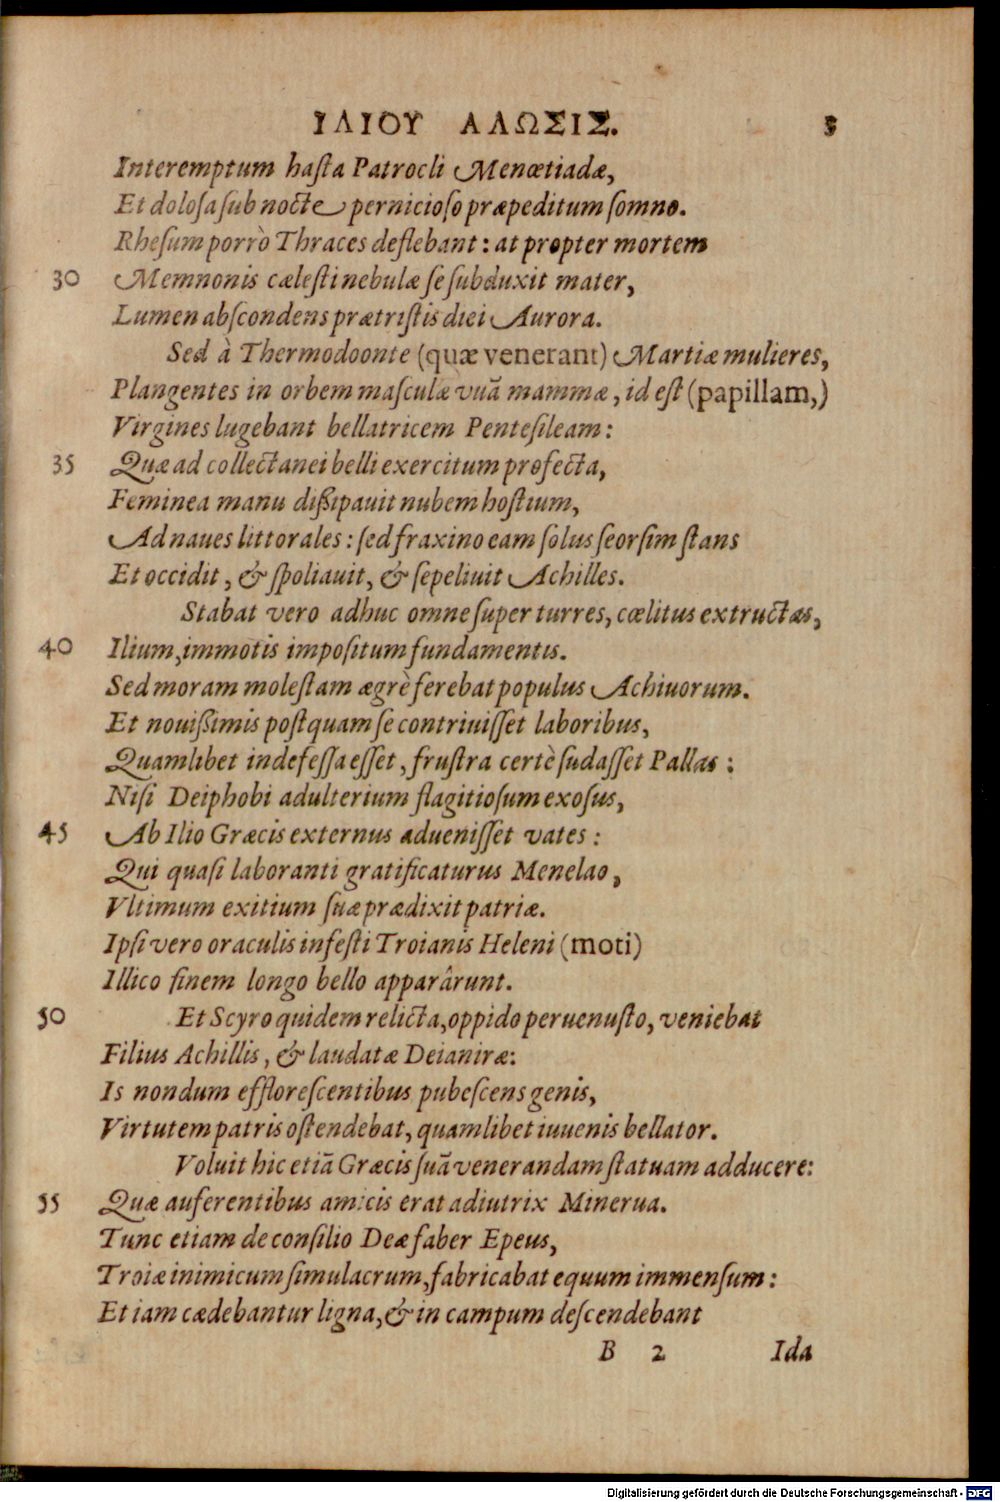 ΙΛΙΟΥ ΑΛΩΣΙΣ. 5
Interemptum haſta Patrocli Menœtiadæ,
Et doloſa ſub nocte pernicioſo præpeditum ſomno.
Rheſum porrò Thraces deflebant: at propter mortem
30 Memnonis cæleſti nebulæ ſe ſubduxit mater,
Lumen abſcondens prætriſtis diei Aurora.
Sed à Thermodoonte (quæ venerant) Martiæ mulieres,
Plangentes in orbem maſculæ vuã mammæ, id eſt (papillam,)
Virgines lugebant bellatricem Penteſileam:
35 Quæ ad collectanei belli exercitum profecta,
Feminea manu diſſipauit nubem hoſtium,
Ad naues littorales: ſed fraxino eam ſolus ſeorſim ſtans
Et occidit, & ſpoliauit, & ſepeliuit Achilles.
Stabat vero adhuc omne ſuper turres, cœlitus extructas,
40 Ilium, immotis impoſitum fundamentis.
Sed moram moleſtam ægrè ferebat populus Achiuorum.
Et nouiſſimis poſtquam ſe contriuiſſet laboribus,
Quamlibet indefeſſa eſſet, fruſtra certè ſudaſſet Pallas:
Niſi Deiphobi adulterium flagitioſum exoſus,
45 Ab Ilio Græcis externus adueniſſet vates:
Qui quaſi laboranti gratificaturus Menelao,
Vltimum exitium ſuæ prædixit patriæ.
Ipſi vero oraculis infeſti Troianis Heleni (moti)
Illico finem longo bello apparârunt.
50 Et Scyro quidem relicta, oppido peruenuſto, veniebat
Filius Achillis, & laudatæ Deianiræ:
Is nondum effloreſcentibus pubeſcens genis,
Virtutem patris oſtendebat, quamlibet iuuenis bellator.
Voluit hic etiã Græcis ſuã venerandam ſtatuam adducere:
55 Quæ auferentibus amicis erat adiutrix Minerua.
Tunc etiam de conſilio Deæ faber Epeus,
Troiæ inimicum ſimulacrum, fabricabat equum immenſum:
Et iam cædebantur ligna, & in campum deſcendebant
B 2 Ida
Digitalisierung gefördert durch die Deutsche Forschungsgemeinschaft - DFG